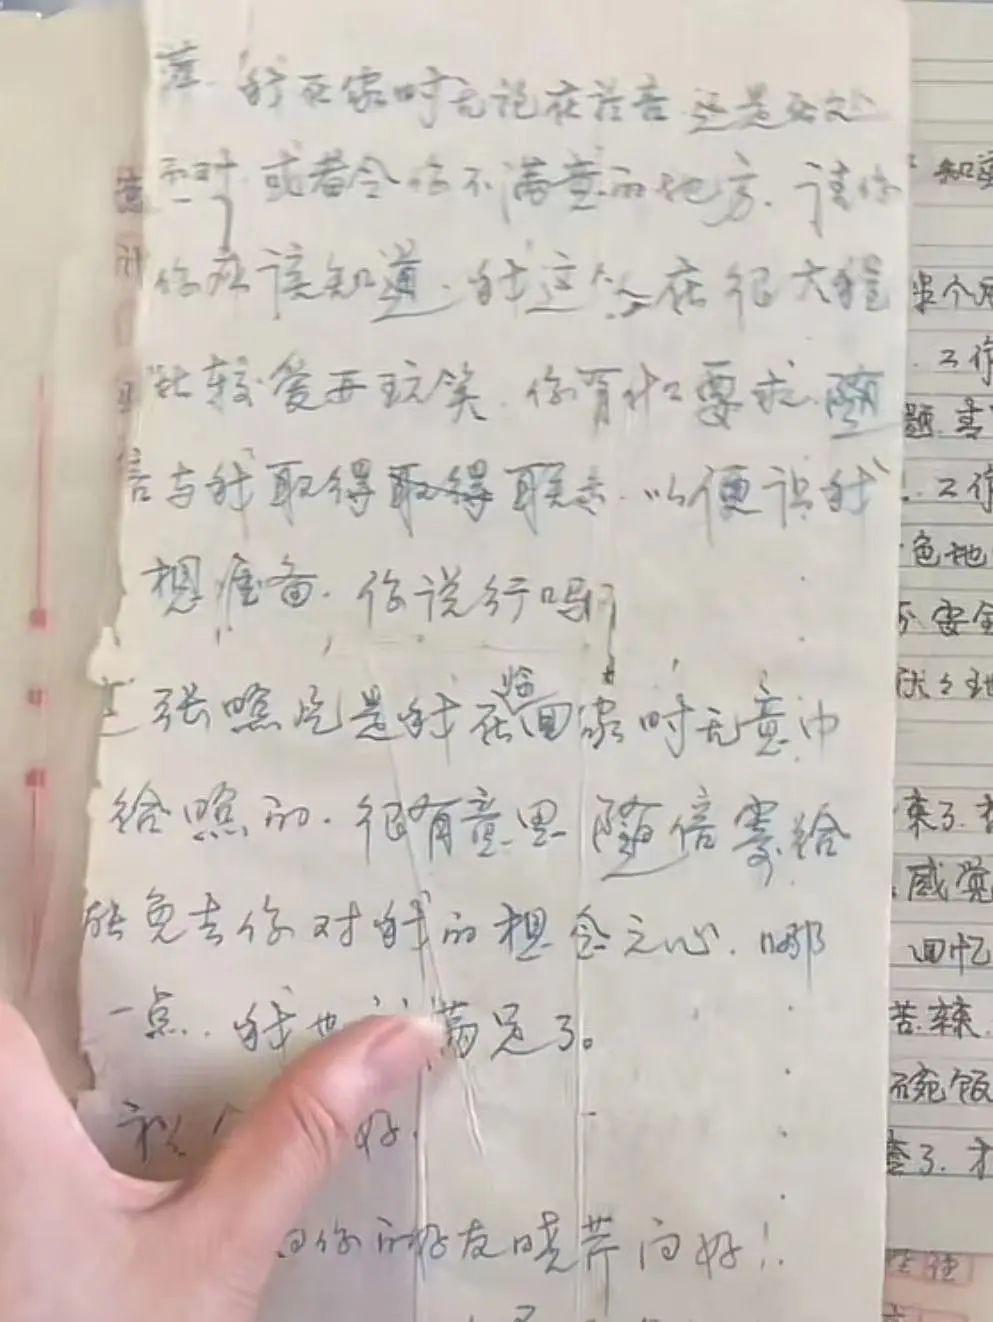 萍. 我在家时无论在谈吾 还是在处
和对. 或者令你不满意的地方. 请你
你应该知道. 我这个人在很大程
比较爱开玩笑. 你有什么要求. 随
信与我取得取得联系. 以便让我
想准备. 你说行吗
这张照片是我在临回家时无意中
给照的. 很有意思 随信寄给
能免去你对我的想念之心. 哪
一点. 我也 满足了。
祝 好.
向你的好友晓芹问好!
知道
半个月
. 工作
题. 表
. 工作
色地
安全
伏々地
来了. 
感觉
回忆
苦. 辣.
碗饭
查了. 才